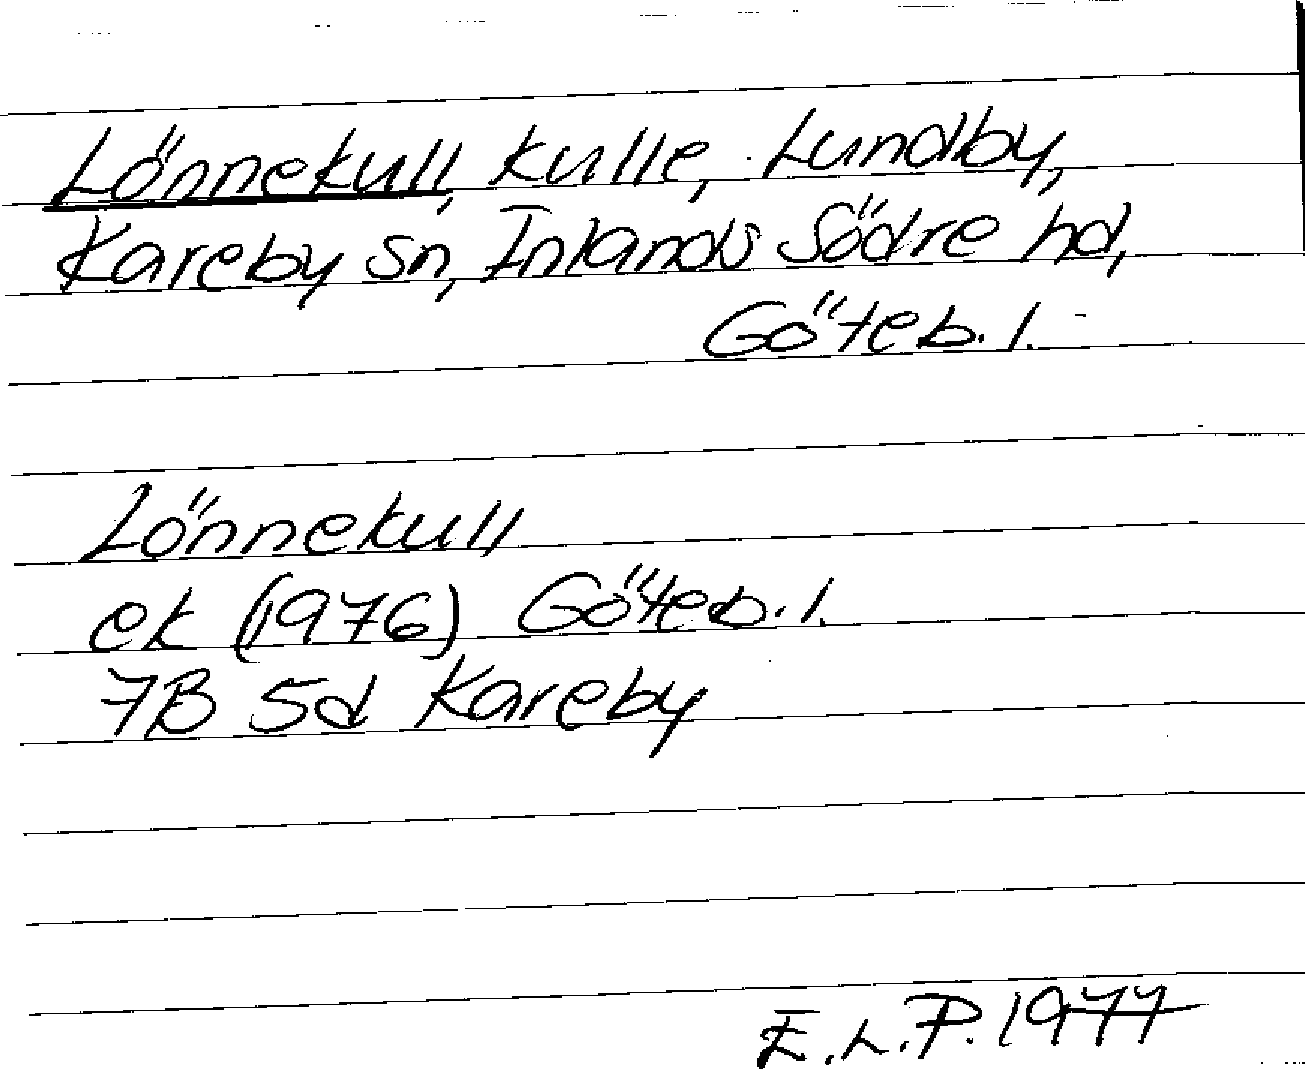 Lönnekull, kulle, Lundby,
Kareby sn, Inlands Södre hd,
Göteb. l.
Lönnekull
ek (1976) Göteb. l.
7B 5d Kareby
E.L.P. 1977